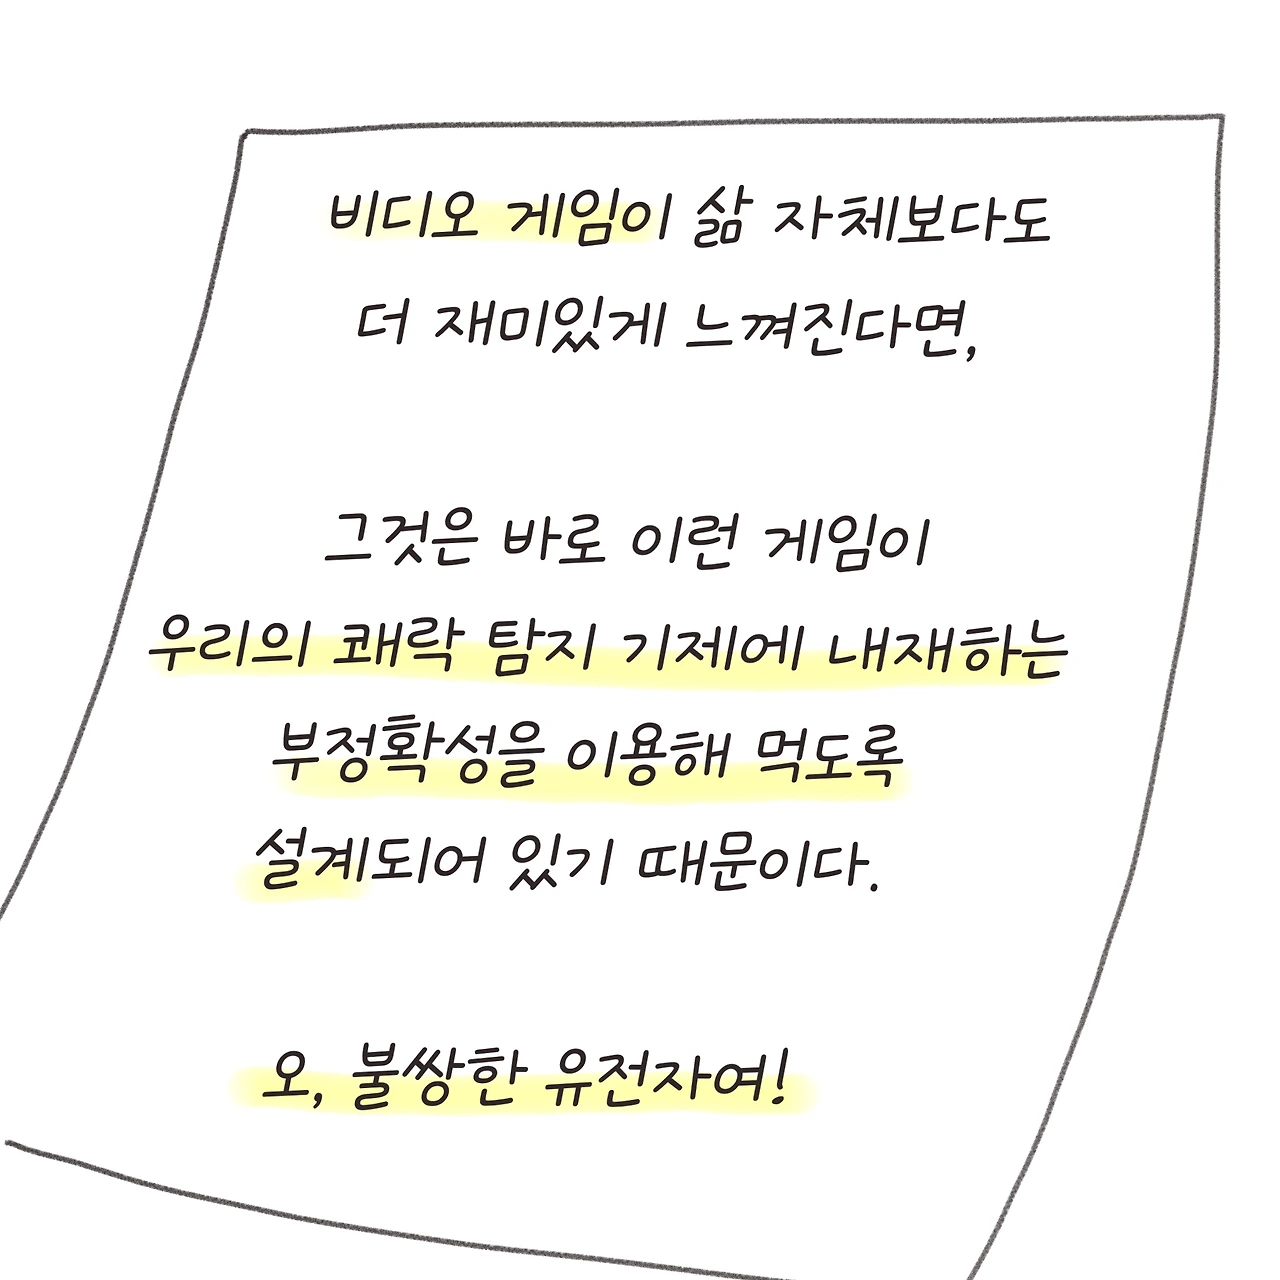 비디오 게임이 삶 자체보다도
더 재미있게 느껴진다면,
그것은 바로 이런 게임이
우리의 쾌락 탐지 기제에 내재하는
부정확성을 이용해 먹도록
설계되어 있기 때문이다.
오, 불쌍한 유전자여!